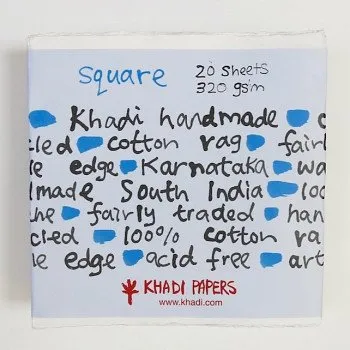 square 20 sheets
320 gsm
Khadi handmade c
led cotton rag fairl
e edge Karnataka wa
made South India 100
ne fairly traded han
cled 100% cotton ra
e edge acid free art
KHADI PAPERS
www.khadi.com